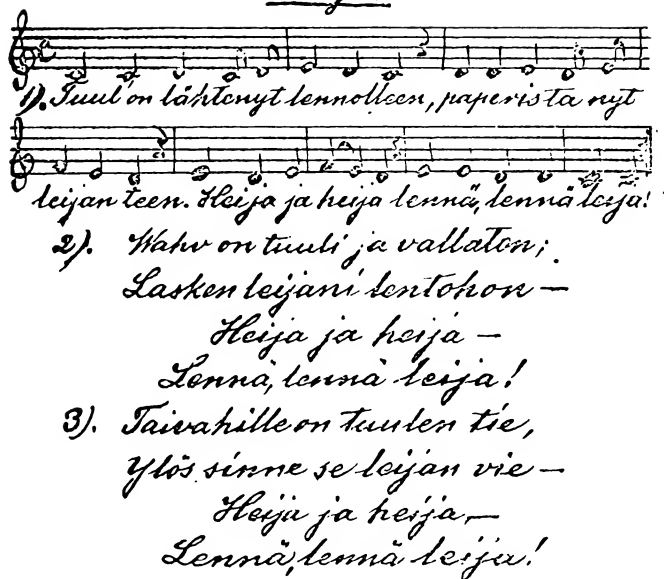 1). Tuul' on lähtenyt lennolleen, paperista nyt
leijan teen. Heija ja heija lennä, lennä leija!
2). Wahv on tuuli ja vallaton;
Lasken leijani lentohon —
Heija ja heija —
Lennä, lennä leija!
3). Taivahille on tuulen tie,
Ylös sinne se leijan vie —
Heija ja heija, —
Lennä, lennä leija!